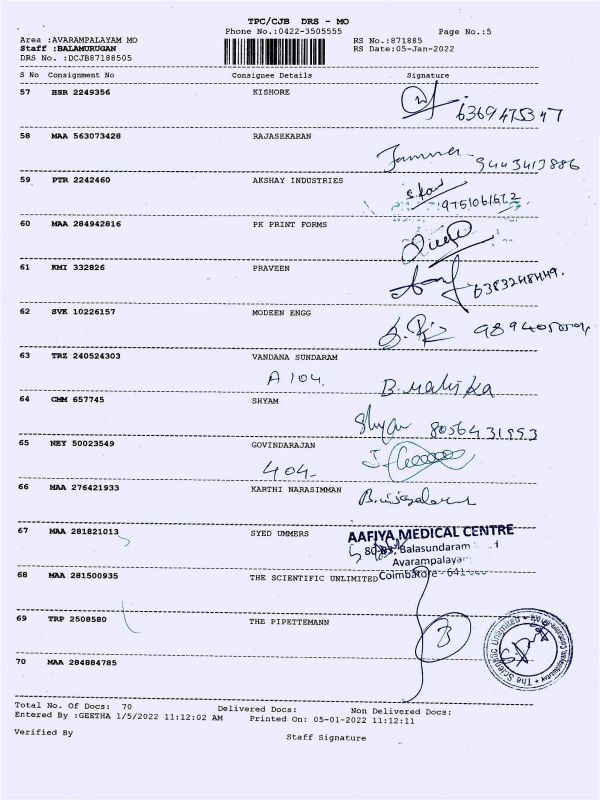 TPC/CJB DRS - MO
Phone No.:0422-3505555
Page No.:5
Area :AVARAMPALAYAM MO
RS No.:871885
Staff :BALAMURUGAN
RS Date:05-Jan-2022
DRS No. :DCJB87188505
S No Consignment No Consignee Details Signature
57 HSR 2249356 KISHORE
6369475347
58 MAA 563073428 RAJASEKARAN
9443413886
59 PTR 2242460 AKSHAY INDUSTRIES
60 MAA 284942816 PK PRINT FORMS
61 KMI 332826 PRAVEEN
6383248449.
62 SVK 10226157 MODEEN ENGG
63 TRZ 240524303 VANDANA SUNDARAM
A 104.
B. Malika
64 CMM 657745 SHYAM
Shyam 8056431993
65 NEY 50023549 GOVINDARAJAN
404-
66 MAA 276421933 KARTHI NARASIMMAN
67 MAA 281821013 SYED UMMERS
AAFIYA MEDICAL CENTRE
Balasundaram
Avarampalayam
68 MAA 281500935 THE SCIENTIFIC UNLIMITED
Coimbatore - 641
69 TRP 2508580 THE PIPETTEMANN
The Scientific Unlimited
70 MAA 284884785
Total No. Of Docs: 70 Delivered Docs: Non Delivered Docs:
Entered By :GEETHA 1/5/2022 11:12:02 AM Printed On: 05-01-2022 11:12:11
Verified By Staff Signature